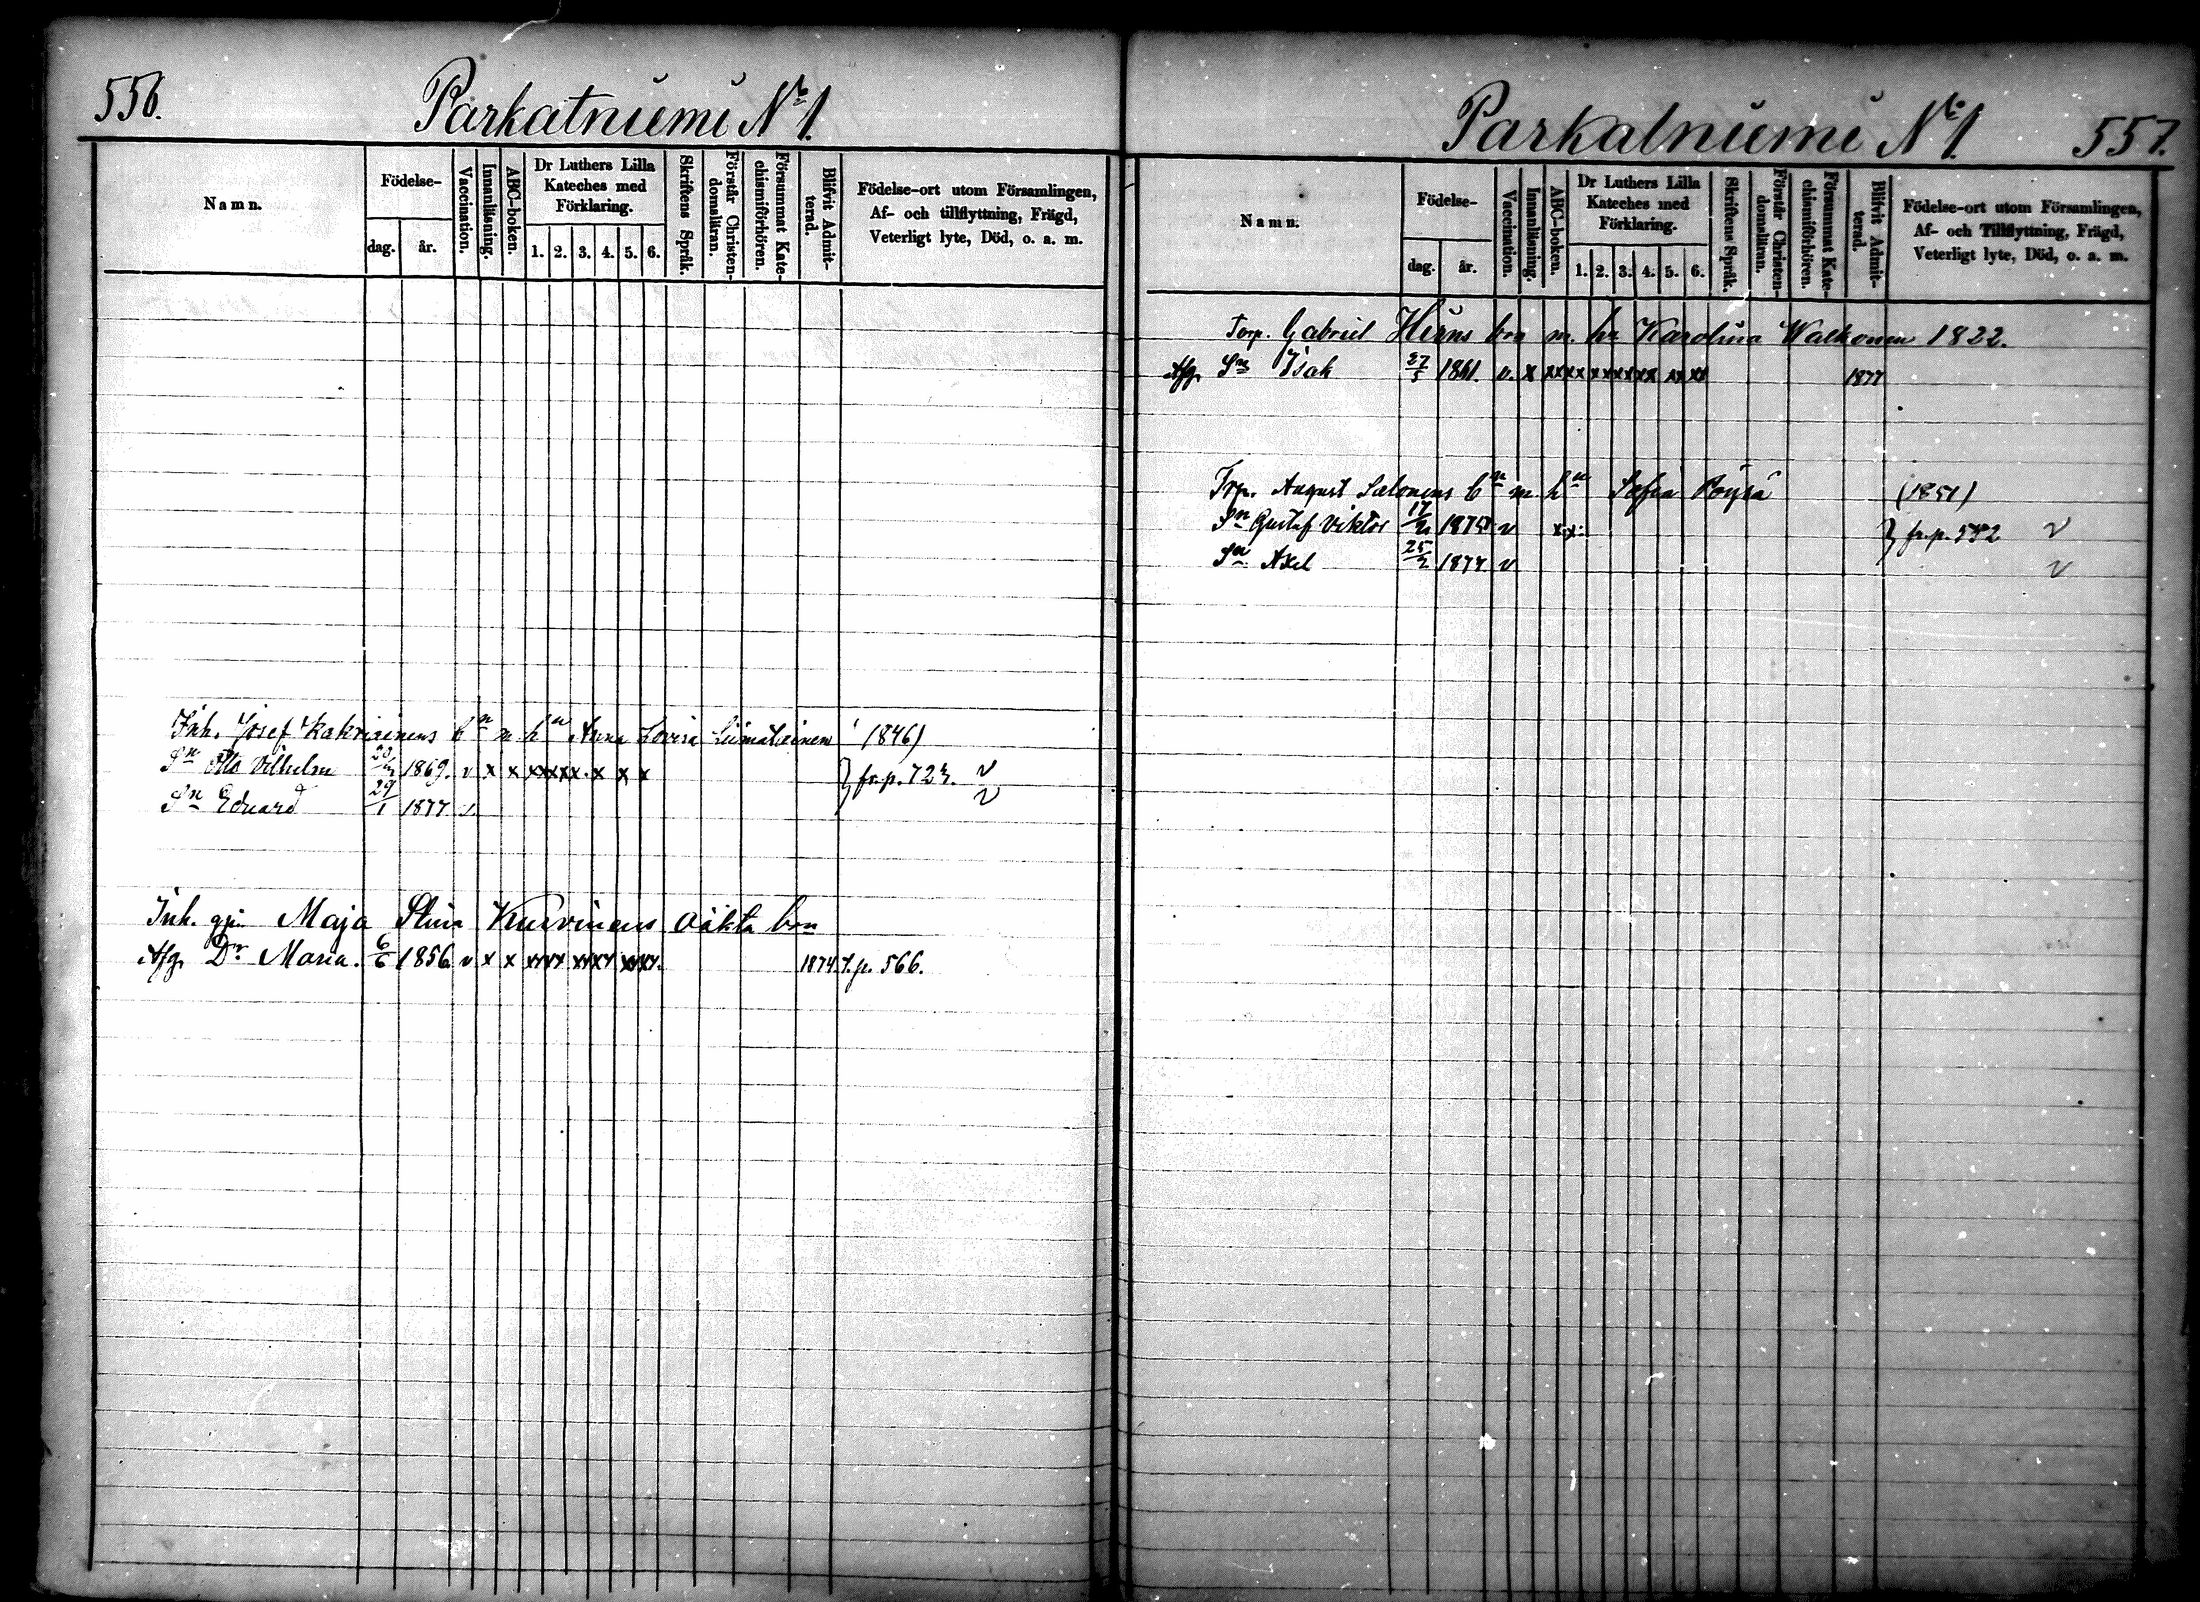 556.
Parkatniemi No 1.
Namn.
Födelse-
dag.
år.
Vaccination.
Innanläsning.
ABC-boken.
Dr Luthers Lilla
Kateches med
Förklaring.
1. 2. 3. 4. 5. 6.
Skriftens Språk.
Förstår Christen-
domsläran.
Försummat Kate-
chismiförhören.
Blifvit Admit-
terad.
Födelse-ort utom Församlingen,
Af- och tillflyttning, Frägd,
Veterligt lyte, Död, o. a. m.
Inh. Josef bn m. hn Anna Lovisa Liimatainen (1846)
Sn Otto Vilhelm 1869. v x x xxxxx. x x x } fr. p. 723. v
Sn Eduard 29/1 1877 v
Inh. gpi. Maja Stina Kurvinens oäkta brn
Afg. Dr Maria. 6/6 1856. v x x xxxx xxxx xxxx. 1874 t. p. 566.
Parkatniemi No 1.
557.
Namn.
Födelse-
dag.
år.
Vaccination.
Innanläsning.
ABC-boken.
Dr Luthers Lilla
Kateches med
Förklaring.
1. 2. 3. 4. 5. 6.
Skriftens Språk.
Förstår Christen-
domsläran.
Försummat Kate-
chismiförhören.
Blifvit Admit-
terad.
Födelse-ort utom Församlingen,
Af- och Tillflyttning, Frägd,
Veterligt lyte, Död, o. a. m.
Torp. Gabriel Hirns brn m. hu Karolina Walkonen 1822.
Afg. Sn Isak 27/5 1861. v. x xxxx xxxxxx xx xx 1877
Trp. August Salonens bn m. hn Sofia Pöysä (1851)
Sn Gustaf Viktor 1875 v x.x. } fr. p. 592 v
Sn Axel 1877 v v